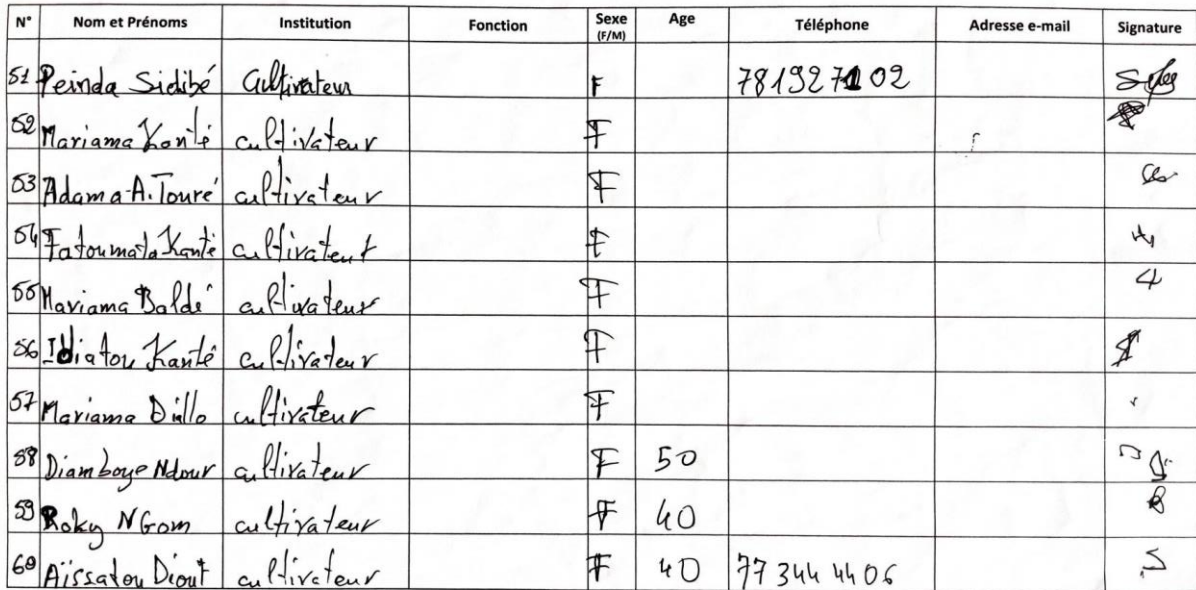 N° Nom et Prénoms Institution Fonction Sexe (F/M) Age Téléphone Adresse e-mail Signature
51 Peinda Sidibé Cultivateur F 781927102
52 Mariama Kanté cultivateur F
53 Adama A. Touré cultivateur F
54 Fatoumata Kanté cultivateur F
55 Mariama Baldé cultivateur F
56 Idiatou Kanté cultivateur F
57 Mariama Diallo cultivateur F
58 Diamboye Ndour cultivateur F 50
59 Roky NGom cultivateur F 40
60 Aïssatou Diouf cultivateur F 40 77 344 44 06